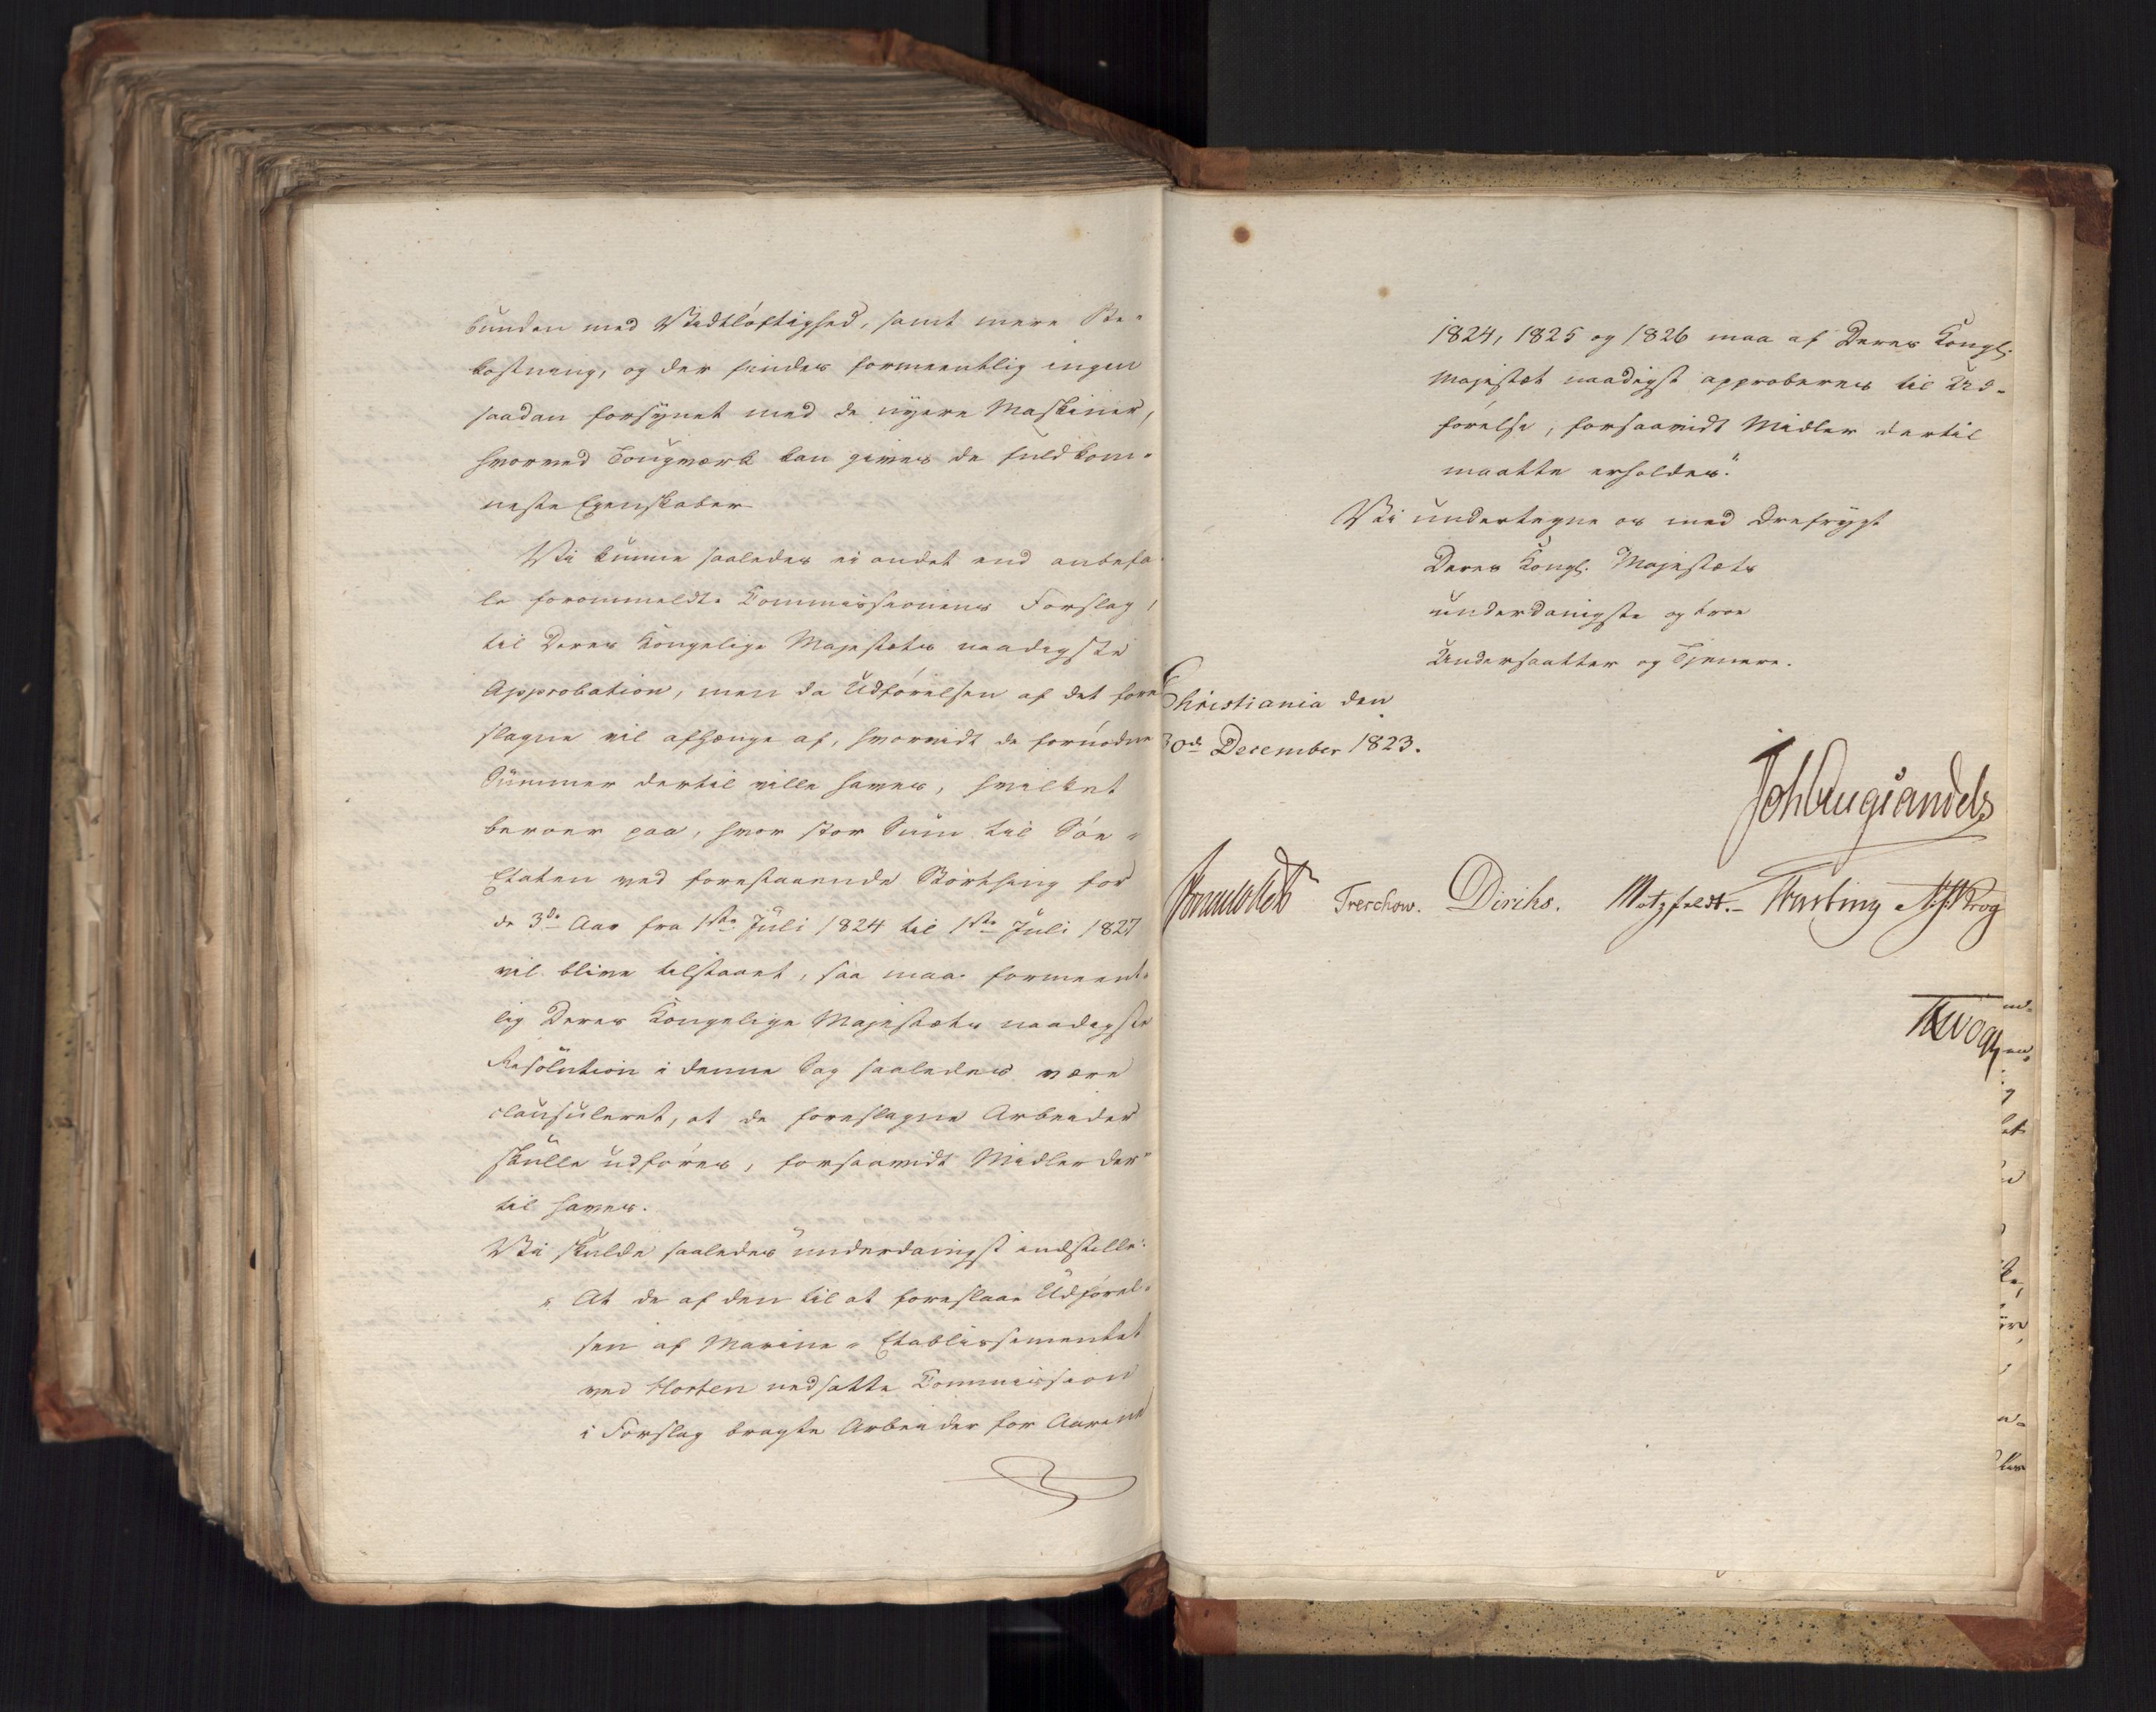 bunden med Vidtløftighed, samt mere Be-
kostning, og der findes formeentlig ingen
saadan forsynet med de nyere Maskiner,
hvorved Tougværk kan gives de fuldkom-
neste Egenskaber
Vi kunne saaledes ei andet end anbefa-
le forommeldte Commissionens Forslag,
til Deres Kongelige Majestæts naadigste
Approbation, men da Udførelsen af det fore-
slagne vil afhænge af, hvorvidt de fornødne
Summer dertil ville haves, hvilket
beroer paa, hvor stor Sum til Søe-
Etaten ved forestaaende Storthing for
de 3de Aar fra 1ste Juli 1824 til 1ste Juli 1827
vil blive tilstaaet, saa maa formeent-
lig Deres Kongelige Majestæts naadigste
Resolution i denne Sag saaledes være
clausuleret, at de foreslagne Arbeider
skulle udføres, forsaavidt Midler der-
til haves.
Vi skulde saaledes underdanigst indstille:
"At de af den til at foreslaae Udførel-
sen af Marine-Etablissementet
ved Horten nedsatte Commission
i Forslag bragte Arbeider for Aarene
1824, 1825 og 1826 maa af Deres Kongl.
Majestæt naadigst approberes til Ud-
førelse, forsaavidt Midler dertil
maatte erholdes."
Vi undertegne os med Ærefrygt
Deres Kongl. Majestæts
underdanigste og troe
Undersaatter og Tjenere.
Christiania den
30de December 1823.
Joh Aug Sandels
Sommerhielm Treschow. Diriks. Motzfeldt. Fasting Krog
JHVogt